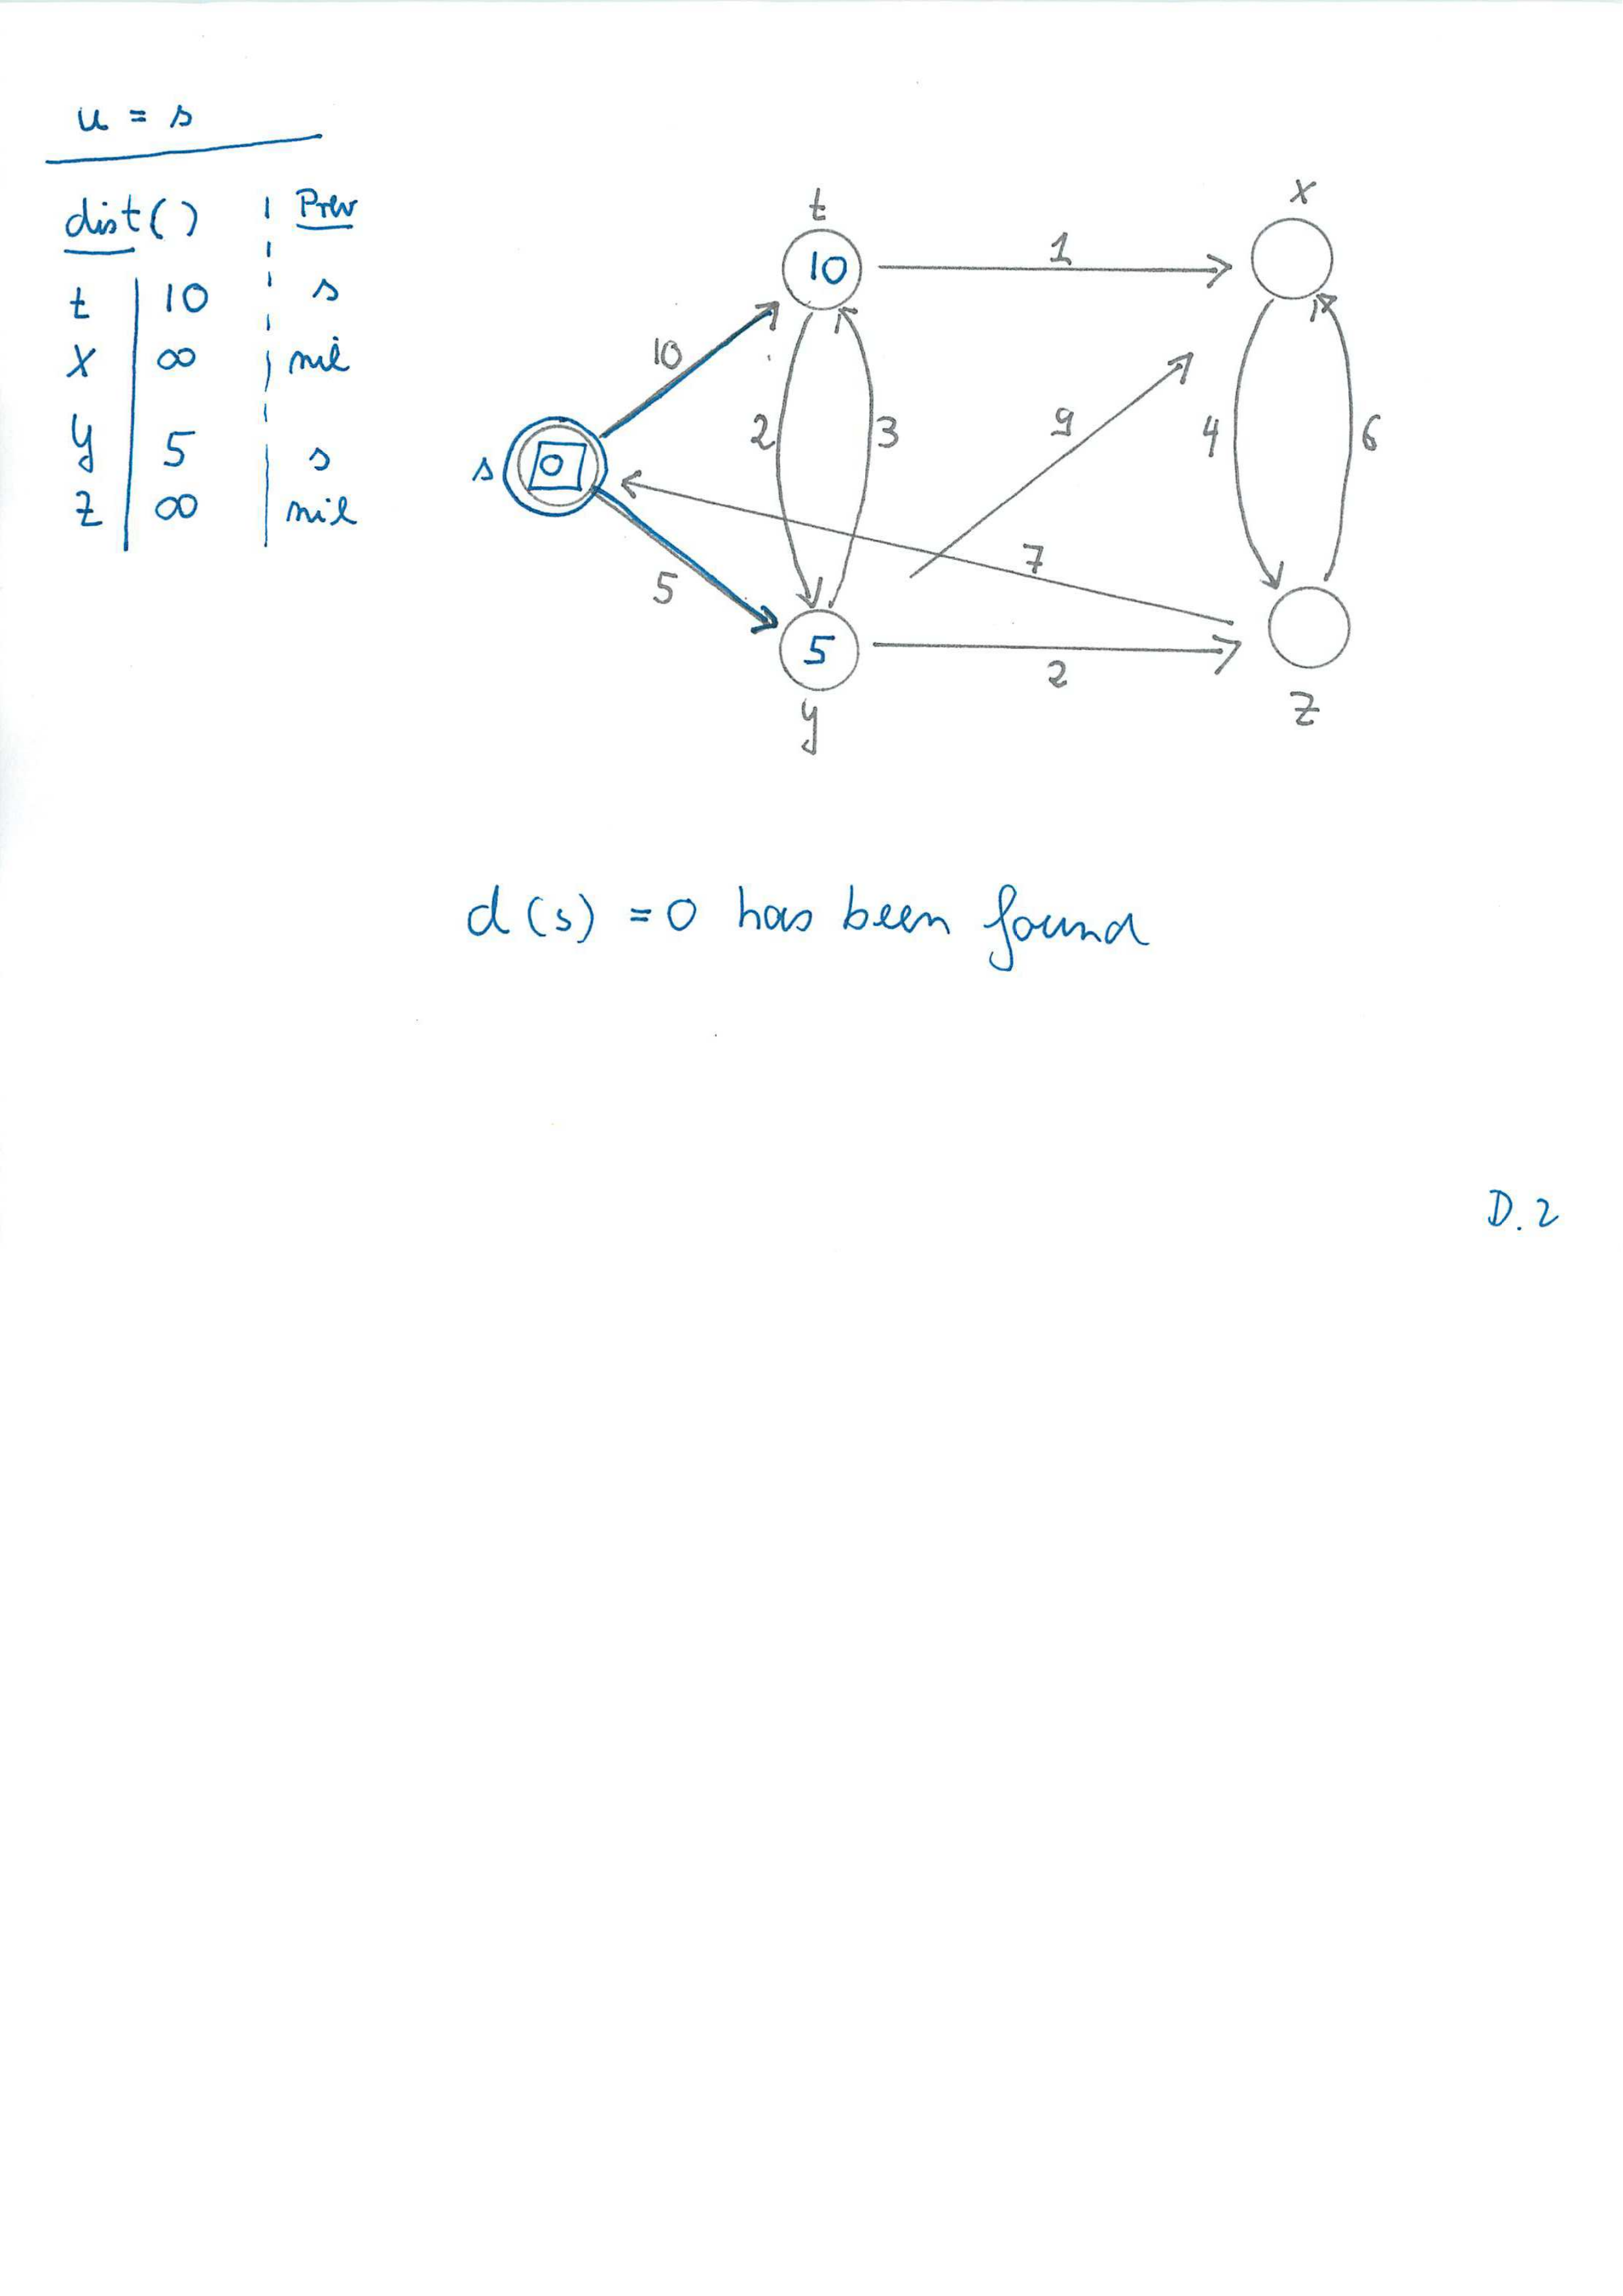 u = s
dist() | Prev
t | 10 | s
x | ∞ | nil
y | 5 | s
z | ∞ | nil
t
x
10
1
10
2
3
9
4
6
s
0
7
5
5
2
y
z
d(s) = 0 has been found
D.2